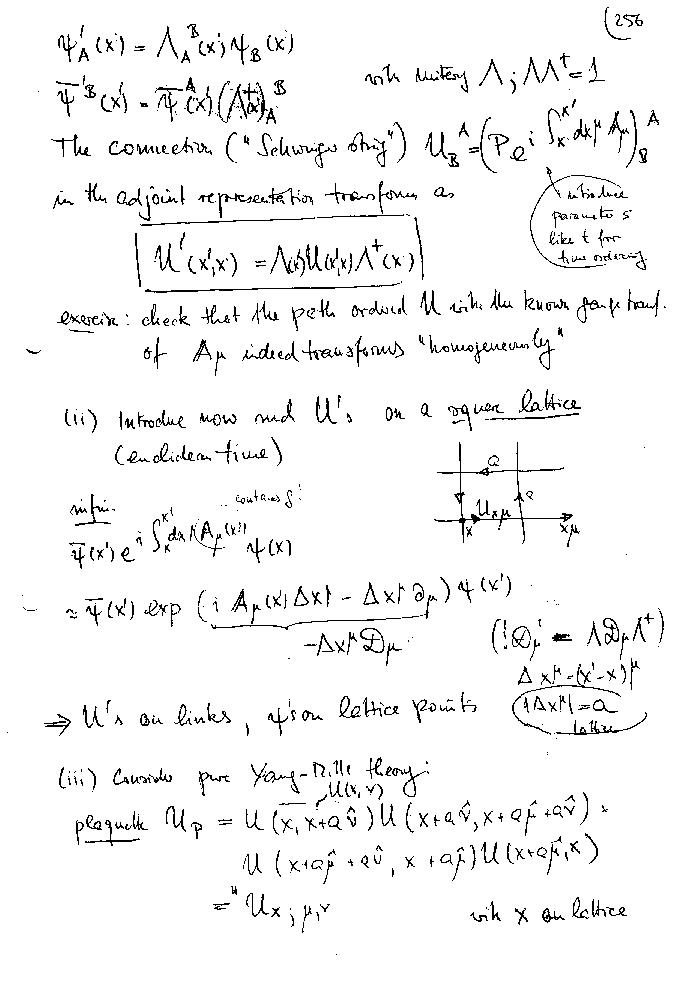 (256
ψ'_A(x) = Λ_A^B(x) ψ_B(x)
ψ̄'^B(x') = ψ̄^A(x') (Λ†)_A^B with unitary Λ; ΛΛ† = 1
The connection ("Schwinger string") U_B^A = (P e^{i ∫_x^{x'} dx^μ A_μ})_B^A
introduce parameter s like t for time ordering
in the adjoint representation transforms as
U'(x',x) = Λ(x')U(x',x)Λ†(x)
exercise: check that the path ordered U with the known gauge transf.
of A_μ indeed transforms "homogeneously"
(ii) Introduce now U's on a square lattice
(euclidean time)
a
a
U_{xμ}
x
x_μ
infin. contains g!
ψ̄(x') e^{i ∫_x^{x'} dx^μ A_μ(x)} ψ(x)
≈ ψ̄(x') exp (i A_μ(x) Δx^μ - Δx^μ ∂_μ) ψ(x')
-Δx^μ D_μ
(! D'_μ = Λ D_μ Λ†)
Δx^μ = (x'-x)^μ
⇒ U's on links, ψ's on lattice points |Δx^μ| = a
lattice
(iii) Consider pure Yang-Mills theory:
U(x, ν)
plaquette U_p = U(x, x+aν̂) U(x+aν̂, x+aμ̂+aν̂) ·
U(x+aμ̂+aν̂, x+aμ̂) U(x+aμ̂, x)
=" U_{x;μ,ν} with x on lattice